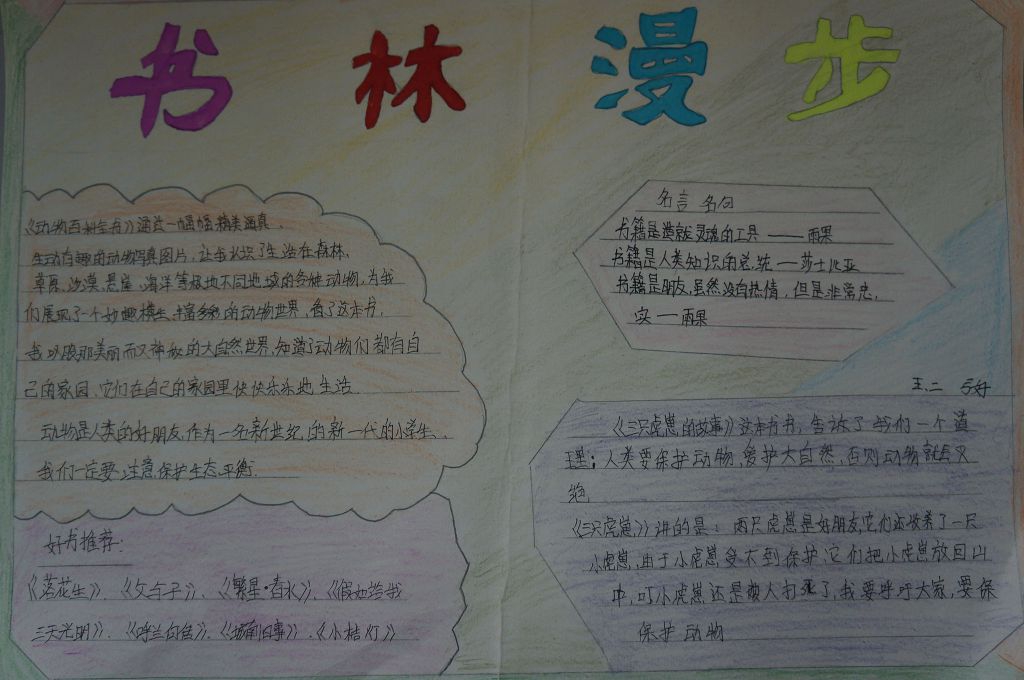 书林漫步
《动物百科全书》通过一幅幅精美逼真、
生动有趣的动物写真图片，让我认识了生活在森林、
草原、沙漠、悬崖、海洋等极地不同地域的各种动物，为我
们展现了一个妙趣横生、丰富多彩的动物世界，看了这本书，
我以及那美丽而又神秘的大自然世界，知道了动物们都有自
己的家园，它们在自己的家园里快快乐乐地生活.
动物是人类的好朋友，作为一名新世纪的新一代的小学生、
我们一定要注意保护生态平衡.
好书推荐：
《落花生》、《父与子》、《繁星·春水》、《假如给我
三天光明》、《呼兰河传》、《城南旧事》、《小桔灯》
名言 名句
书籍是造就灵魂的工具 ——雨果
书籍是人类知识的总统 —莎士比亚
书籍是朋友，虽然没有热情，但是非常忠，
实 —雨果
王二
《三只虎崽的故事》这本书书，告诉了我们一个道
理；人类要保护动物，爱护大自然，否则动物就会灭
绝
《三只虎崽》讲的是：两只虎崽是好朋友，它们还收养了一只
小虎崽，由于小虎崽受不到保护，它们把小虎崽放回山
中，可小虎崽还是被人打死了，我要呼吁大家，要保
保护动物